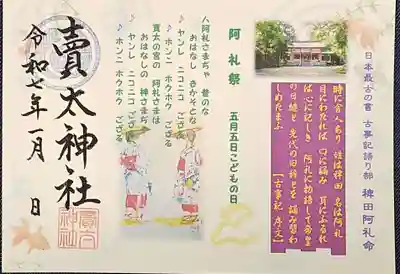 日本最古の書 古事記語り部 稗田阿礼命
時に舎人あり 姓は稗田 名は阿礼
目にわたれば 口に誦み 耳にふるれ
ば心に記しき 阿礼に勅語して帝皇
の日継と 先代の旧辞とを 誦み習わ
しめたまふ 【古事記 序文】
阿礼祭 五月五日こどもの日
♪阿礼さまぢゃ 昔のな
おはなし きかそとな
♪ヤンレ ニコニコで ござる
♪ホンニ ホウホウ ござる
賣太の宮の 阿礼さまは
おはなしの 神さまぢゃ
♪ヤンレ ニコニコ ござる
♪ホンニ ホウホウ ござる
賣太神社
令和七年一月 日